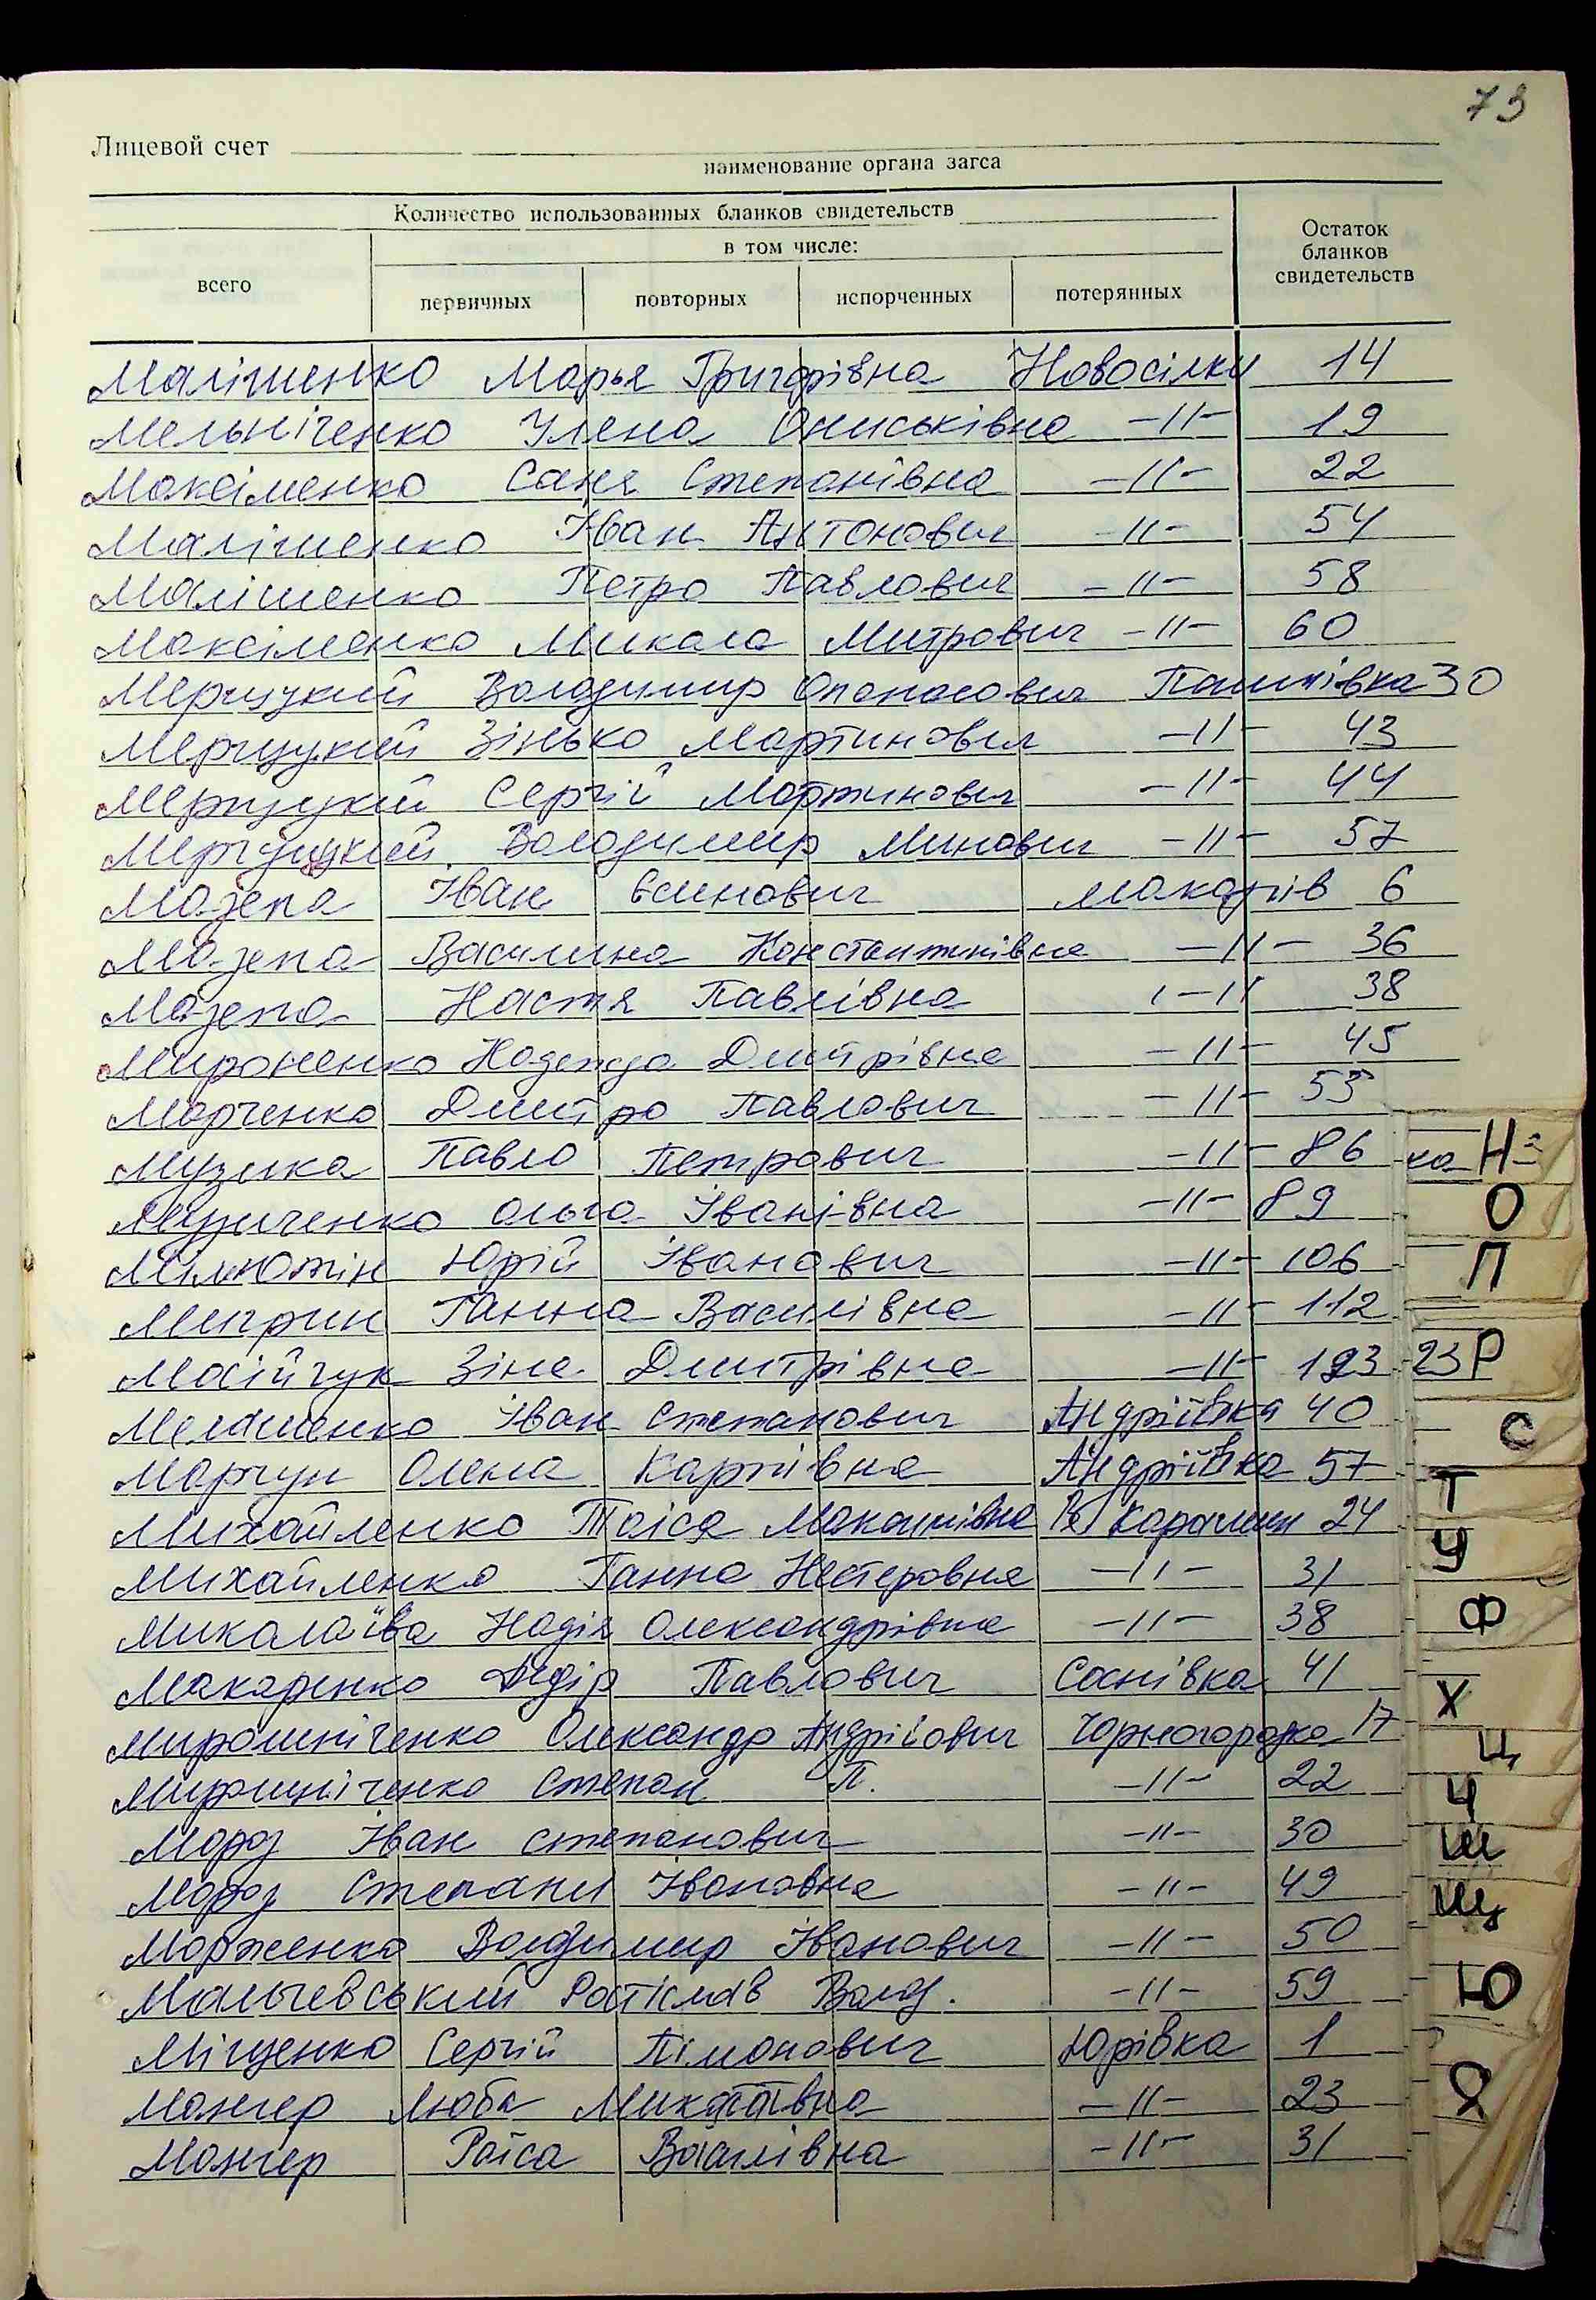 73
Лицевой счет
наименование органа загса
Количество использованных бланков свидетельств
Остаток бланков свидетельств
в том числе:
всего
первичных повторных испорченных потерянных
Малішенко Марья Григорівна Новосілки 14
Мельніченко Улена Ониськівна -//- 19
Максіменко Саня Степанівна -//- 22
Малішенко Іван Антонович -//- 54
Малішенко Петро Павлович -//- 58
Максіменко Микала Митрович -//- 60
Мерцуцкий Володимир Опанасович Пашківка 30
Мерцуцкий Зінько Мартинович -//- 43
Мерцуцкий Сергій Мартинович -//- 44
Мерцуцкий Володимир Минович -//- 57
Мазепа Іван Єсинович Макарів 6
Мазепа Василина Константинівна -//- 36
Мазепа Настя Павлівна -//- 38
Мироненко Надежда Дмитрівна -//- 45
Марченко Дмитро Павлович -//- 53
Музика Павло Петрович -//- 86
Музиченко Ольга Іванівна -//- 89
Мілютін Юрій Іванович -//- 106
Мигрин Ганна Василівна -//- 112
Масійчук Зіна Дмитрівна -//- 123
Мелашенко Іван Степанович Андріївка 40
Марчун Олена Карпівна Андріївка 57
Михайленко Таіса Макашівна Карашин 24
Михайленко Ганна Нестеровна -//- 31
Микалаїва Надія Олександрівна -//- 38
Макаренко Федір Павлович Соснівка 41
Мирошніченко Олександр Андрійович Чорногородка 17
Мирошніченко Степан П. -//- 22
Мороз Іван Степанович -//- 30
Мороз Степани Івановна -//- 49
Марженко Володимир Іванович -//- 50
Малычевський Ростіслав Волод. -//- 59
Міщенко Сергій Пімонович Юрівка 1
Манзер Люба Микалаївна -//- 23
Манзер Раїса Василівна -//- 31
ка Н
О
П
23 Р
С
Т
У
Ф
Х
Ц
Ч
Ш
Щ
Ю
Я